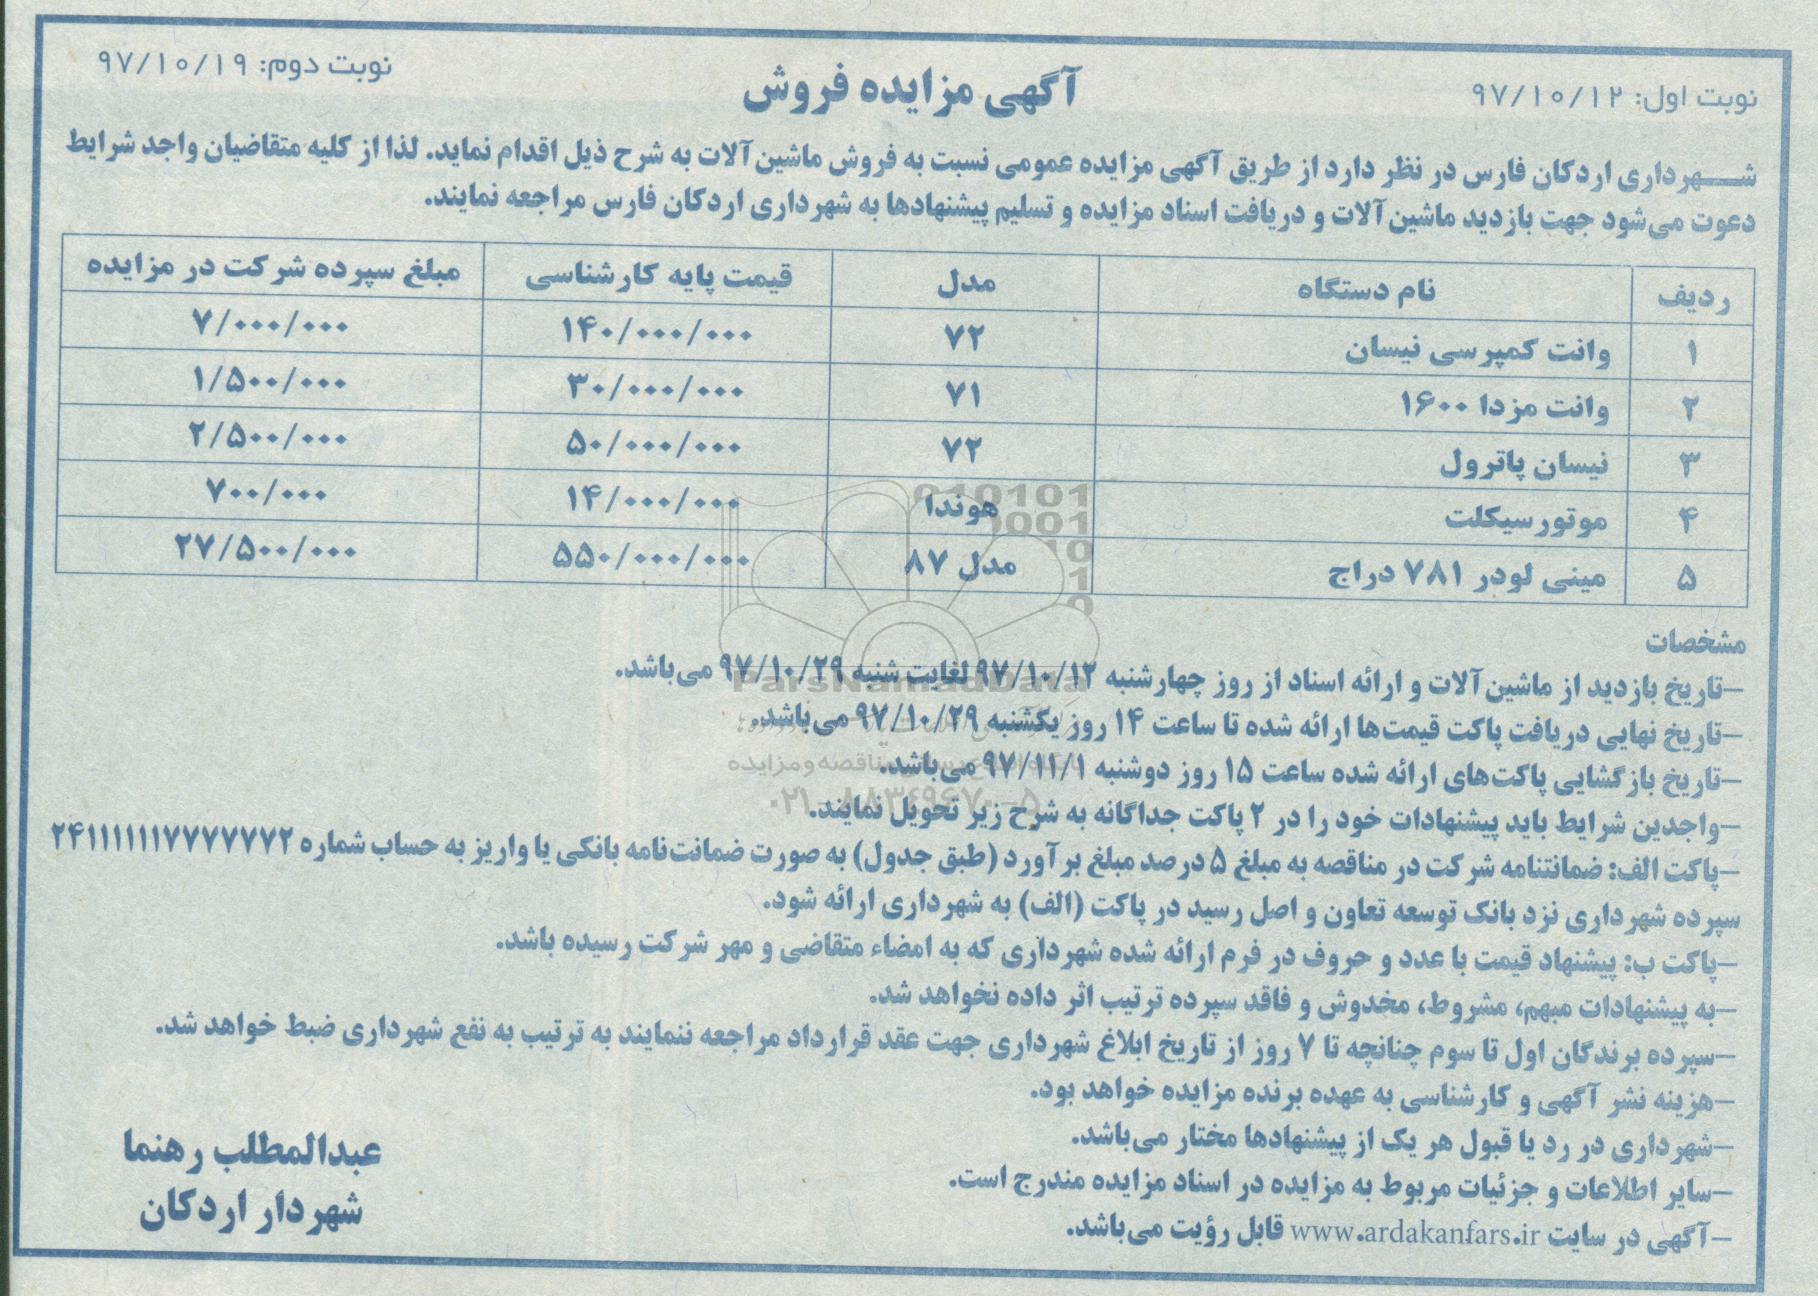 نوبت اول: ۹۷/۱۰/۱۲
آگهی مزایده فروش
نوبت دوم: ۹۷/۱۰/۱۹
شهرداری اردکان فارس در نظر دارد از طریق آگهی مزایده عمومی نسبت به فروش ماشین‌آلات به شرح ذیل اقدام نماید. لذا از کلیه متقاضیان واجد شرایط
دعوت می‌شود جهت بازدید ماشین‌آلات و دریافت اسناد مزایده و تسلیم پیشنهادها به شهرداری اردکان فارس مراجعه نمایند.
ردیف نام دستگاه مدل قیمت پایه کارشناسی مبلغ سپرده شرکت در مزایده
۱ وانت کمپرسی نیسان ۷۲ ۱۴۰/۰۰۰/۰۰۰ ۷/۰۰۰/۰۰۰
۲ وانت مزدا ۱۶۰۰ ۷۱ ۳۰/۰۰۰/۰۰۰ ۱/۵۰۰/۰۰۰
۳ نیسان پاترول ۷۲ ۵۰/۰۰۰/۰۰۰ ۲/۵۰۰/۰۰۰
۴ موتورسیکلت هوندا ۱۴/۰۰۰/۰۰۰ ۷۰۰/۰۰۰
۵ مینی لودر ۷۸۱ دراج مدل ۸۷ ۵۵۰/۰۰۰/۰۰۰ ۲۷/۵۰۰/۰۰۰
مشخصات
–تاریخ بازدید از ماشین‌آلات و ارائه اسناد از روز چهارشنبه ۹۷/۱۰/۱۲ لغایت شنبه ۹۷/۱۰/۲۹ می‌باشد.
–تاریخ نهایی دریافت پاکت قیمت‌ها ارائه شده تا ساعت ۱۴ روز یکشنبه ۹۷/۱۰/۲۹ می‌باشد.
–تاریخ بازگشایی پاکت‌های ارائه شده ساعت ۱۵ روز دوشنبه ۹۷/۱۱/۱ می‌باشد.
–واجدین شرایط باید پیشنهادات خود را در ۲ پاکت جداگانه به شرح زیر تحویل نمایند.
–پاکت الف: ضمانتنامه شرکت در مناقصه به مبلغ ۵ درصد مبلغ برآورد (طبق جدول) به صورت ضمانت‌نامه بانکی یا واریز به حساب شماره ۲۴۱۱۱۱۱۱۱۷۷۷۷۷۷۲
سپرده شهرداری نزد بانک توسعه تعاون و اصل رسید در پاکت (الف) به شهرداری ارائه شود.
–پاکت ب: پیشنهاد قیمت با عدد و حروف در فرم ارائه شده شهرداری که به امضاء متقاضی و مهر شرکت رسیده باشد.
–به پیشنهادات مبهم، مشروط، مخدوش و فاقد سپرده ترتیب اثر داده نخواهد شد.
–سپرده برندگان اول تا سوم چنانچه تا ۷ روز از تاریخ ابلاغ شهرداری جهت عقد قرارداد مراجعه ننمایند به ترتیب به نفع شهرداری ضبط خواهد شد.
–هزینه نشر آگهی و کارشناسی به عهده برنده مزایده خواهد بود.
–شهرداری در رد یا قبول هر یک از پیشنهادها مختار می‌باشد.
–سایر اطلاعات و جزئیات مربوط به مزایده در اسناد مزایده مندرج است.
–آگهی در سایت www.ardakanfars.ir قابل رؤیت می‌باشد.
عبدالمطلب رهنما
شهردار اردکان
ParsNamadData